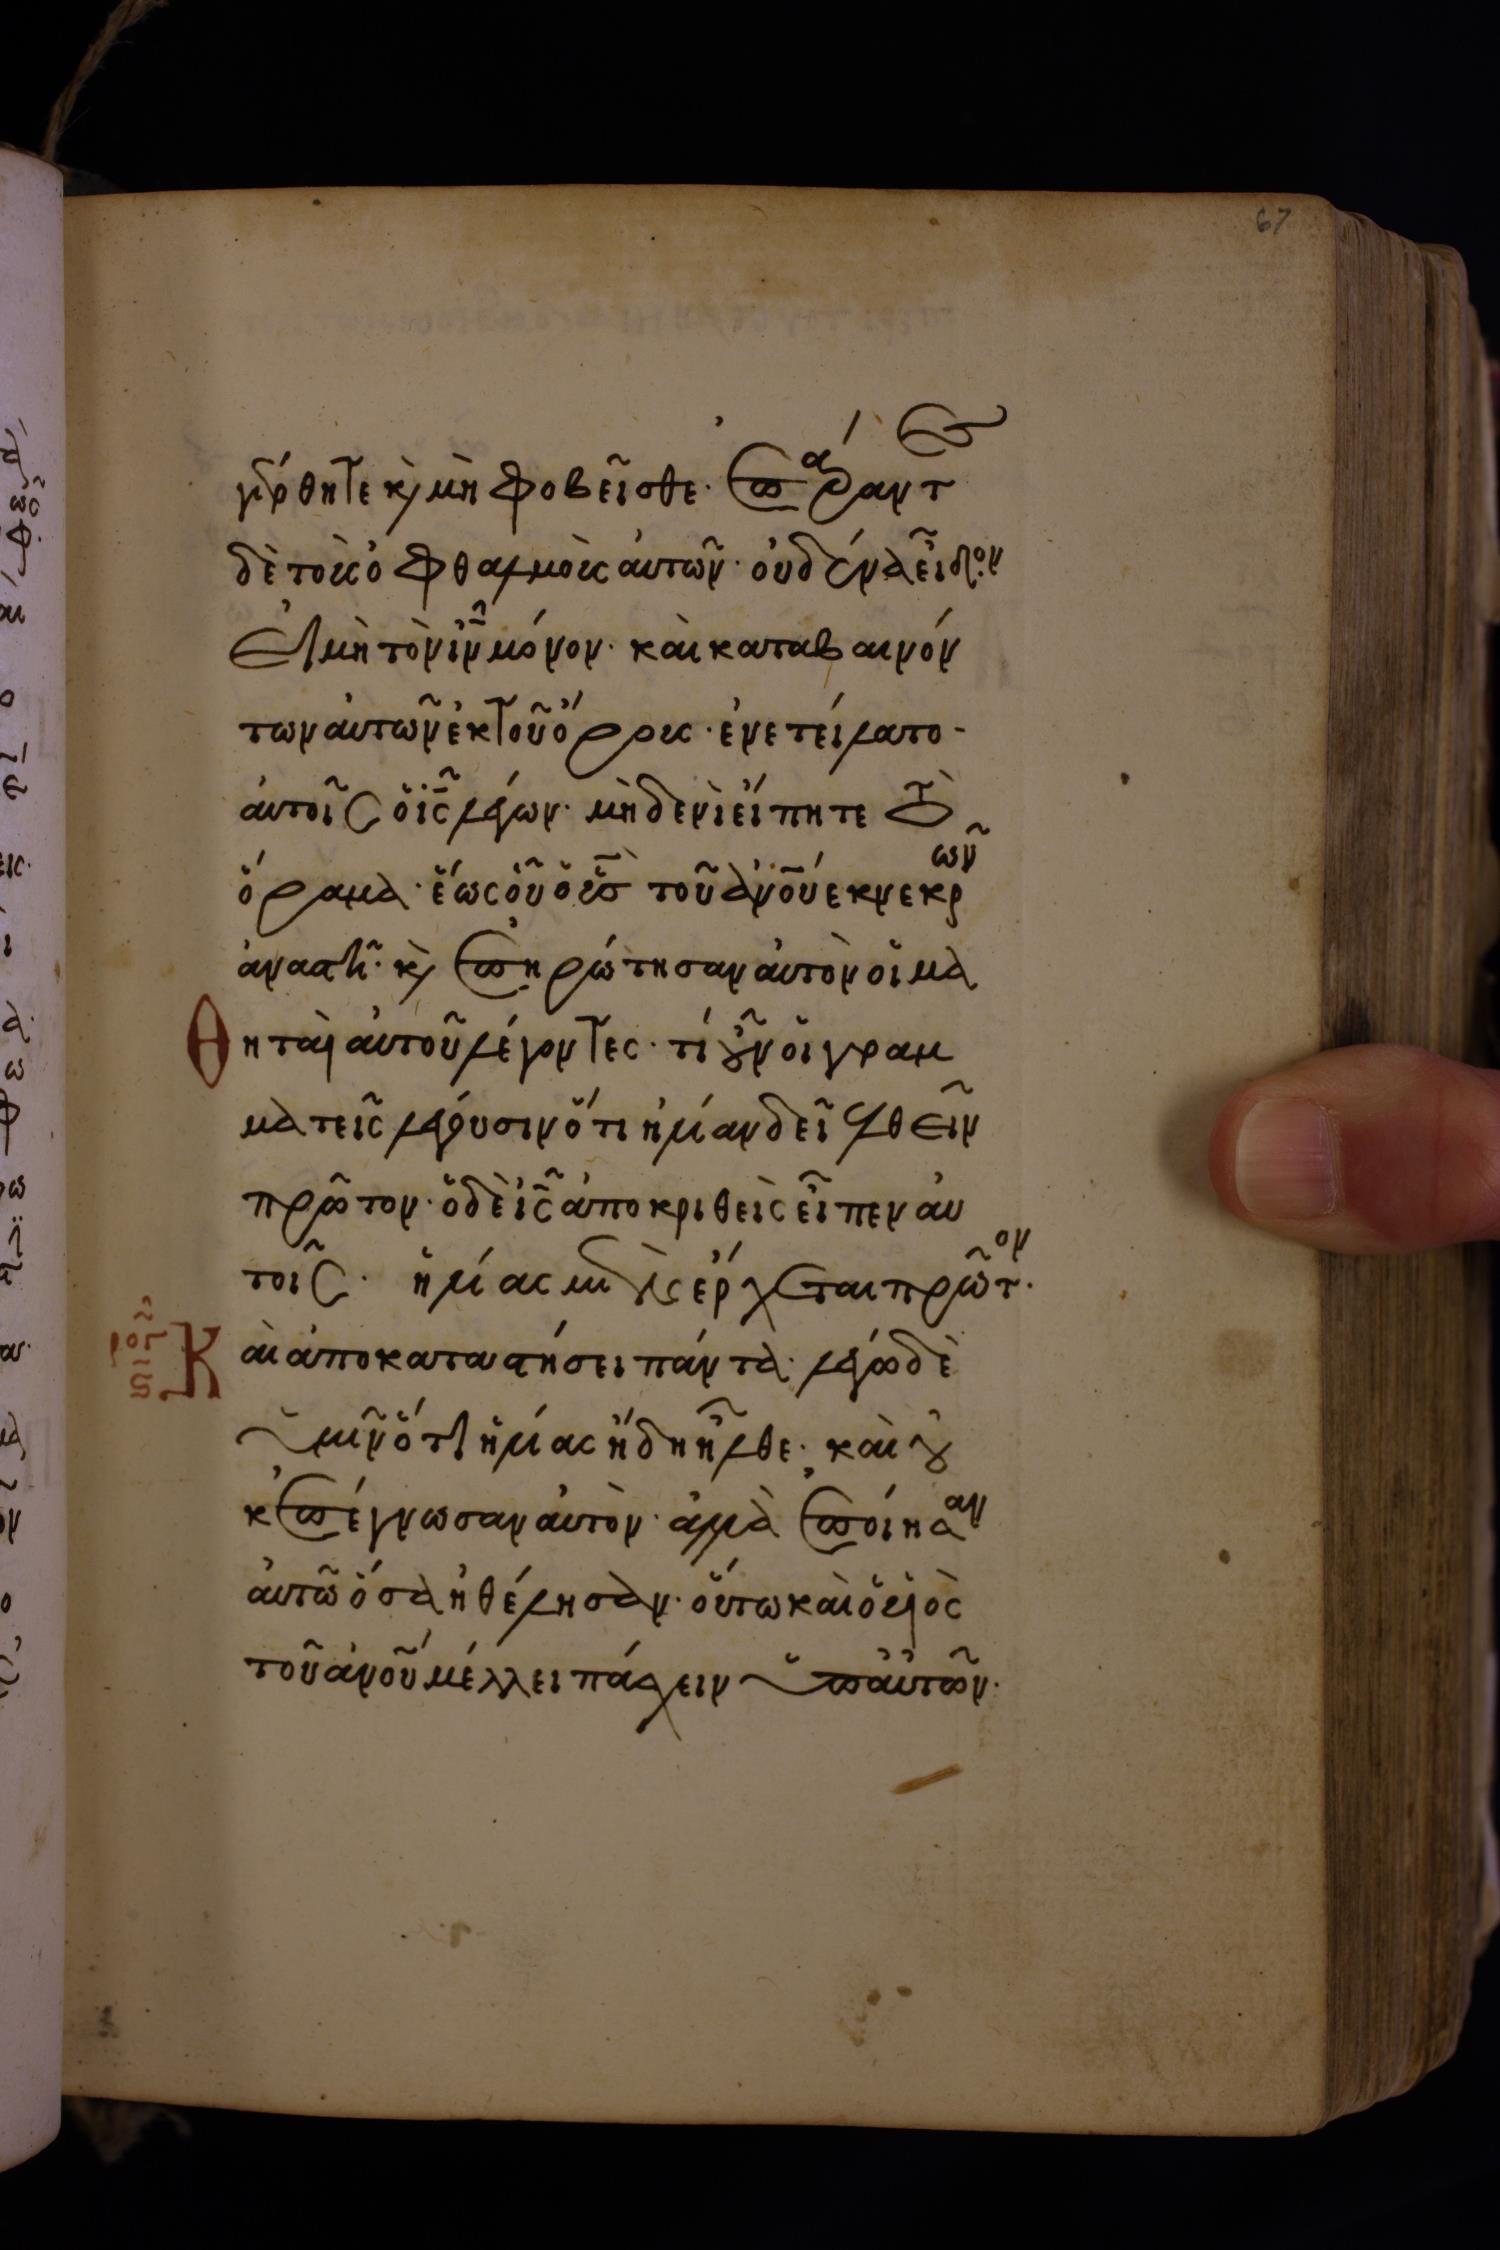 67
γέρθητε κ(αὶ) μὴ φοβεῖσθε· ἐπάραντες
δὲ τοὺς ὀφθαλμοὺς αὐτῶν· οὐδένα εἶδον
εἰ μὴ τὸν ιν̅ μόνον· καὶ καταβαινόν
των αὐτῶν ἐκ τοῦ ὄρους· ἐνετείλατο
αὐτοῖς ὁ ις̅ λέγων· μὴδενὶ εἴπητε τὸ
ὅραμα· ἕως οὗ ὁ υἱὸς τοῦ ἀνου ἐκ νεκρῶν
ἀναστῆ· κ(αὶ) ἐπηρώτησαν αὐτὸν οἱ μα
θηταὶ αὐτοῦ λέγοντες· τί οὖν οἱ γραμ
ματεῖς λέγουσιν ὅτι ἠλίαν δεῖ ἐλθεῖν
πρῶτον· ὁ δὲ ις̅ ἀποκριθεὶς εἶπεν αὐ
τοῖς· ἠλίας μὲν ἔρχεται πρῶτον·
καὶ ἀποκαταστήσει πάντα· λέγω δὲ
ὑμῖν ὅτι ἠλίας ἤδη ἦλθε· καὶ οὐ
κ ἐπέγνωσαν αὐτὸν· ἀλλὰ ἐποίησαν
αὐτῶ ὅσα ἠθέλησαν· οὕτω καὶ ὁ υἱὸς
τοῦ ἀνου μέλλει πάσχειν ὑπ αὐτῶν·